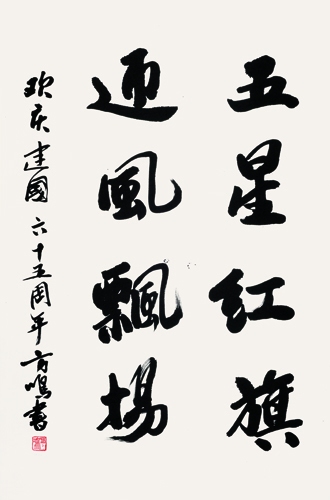 五星红旗
迎風飄揚
欢庆建國六十五周年方鳴書